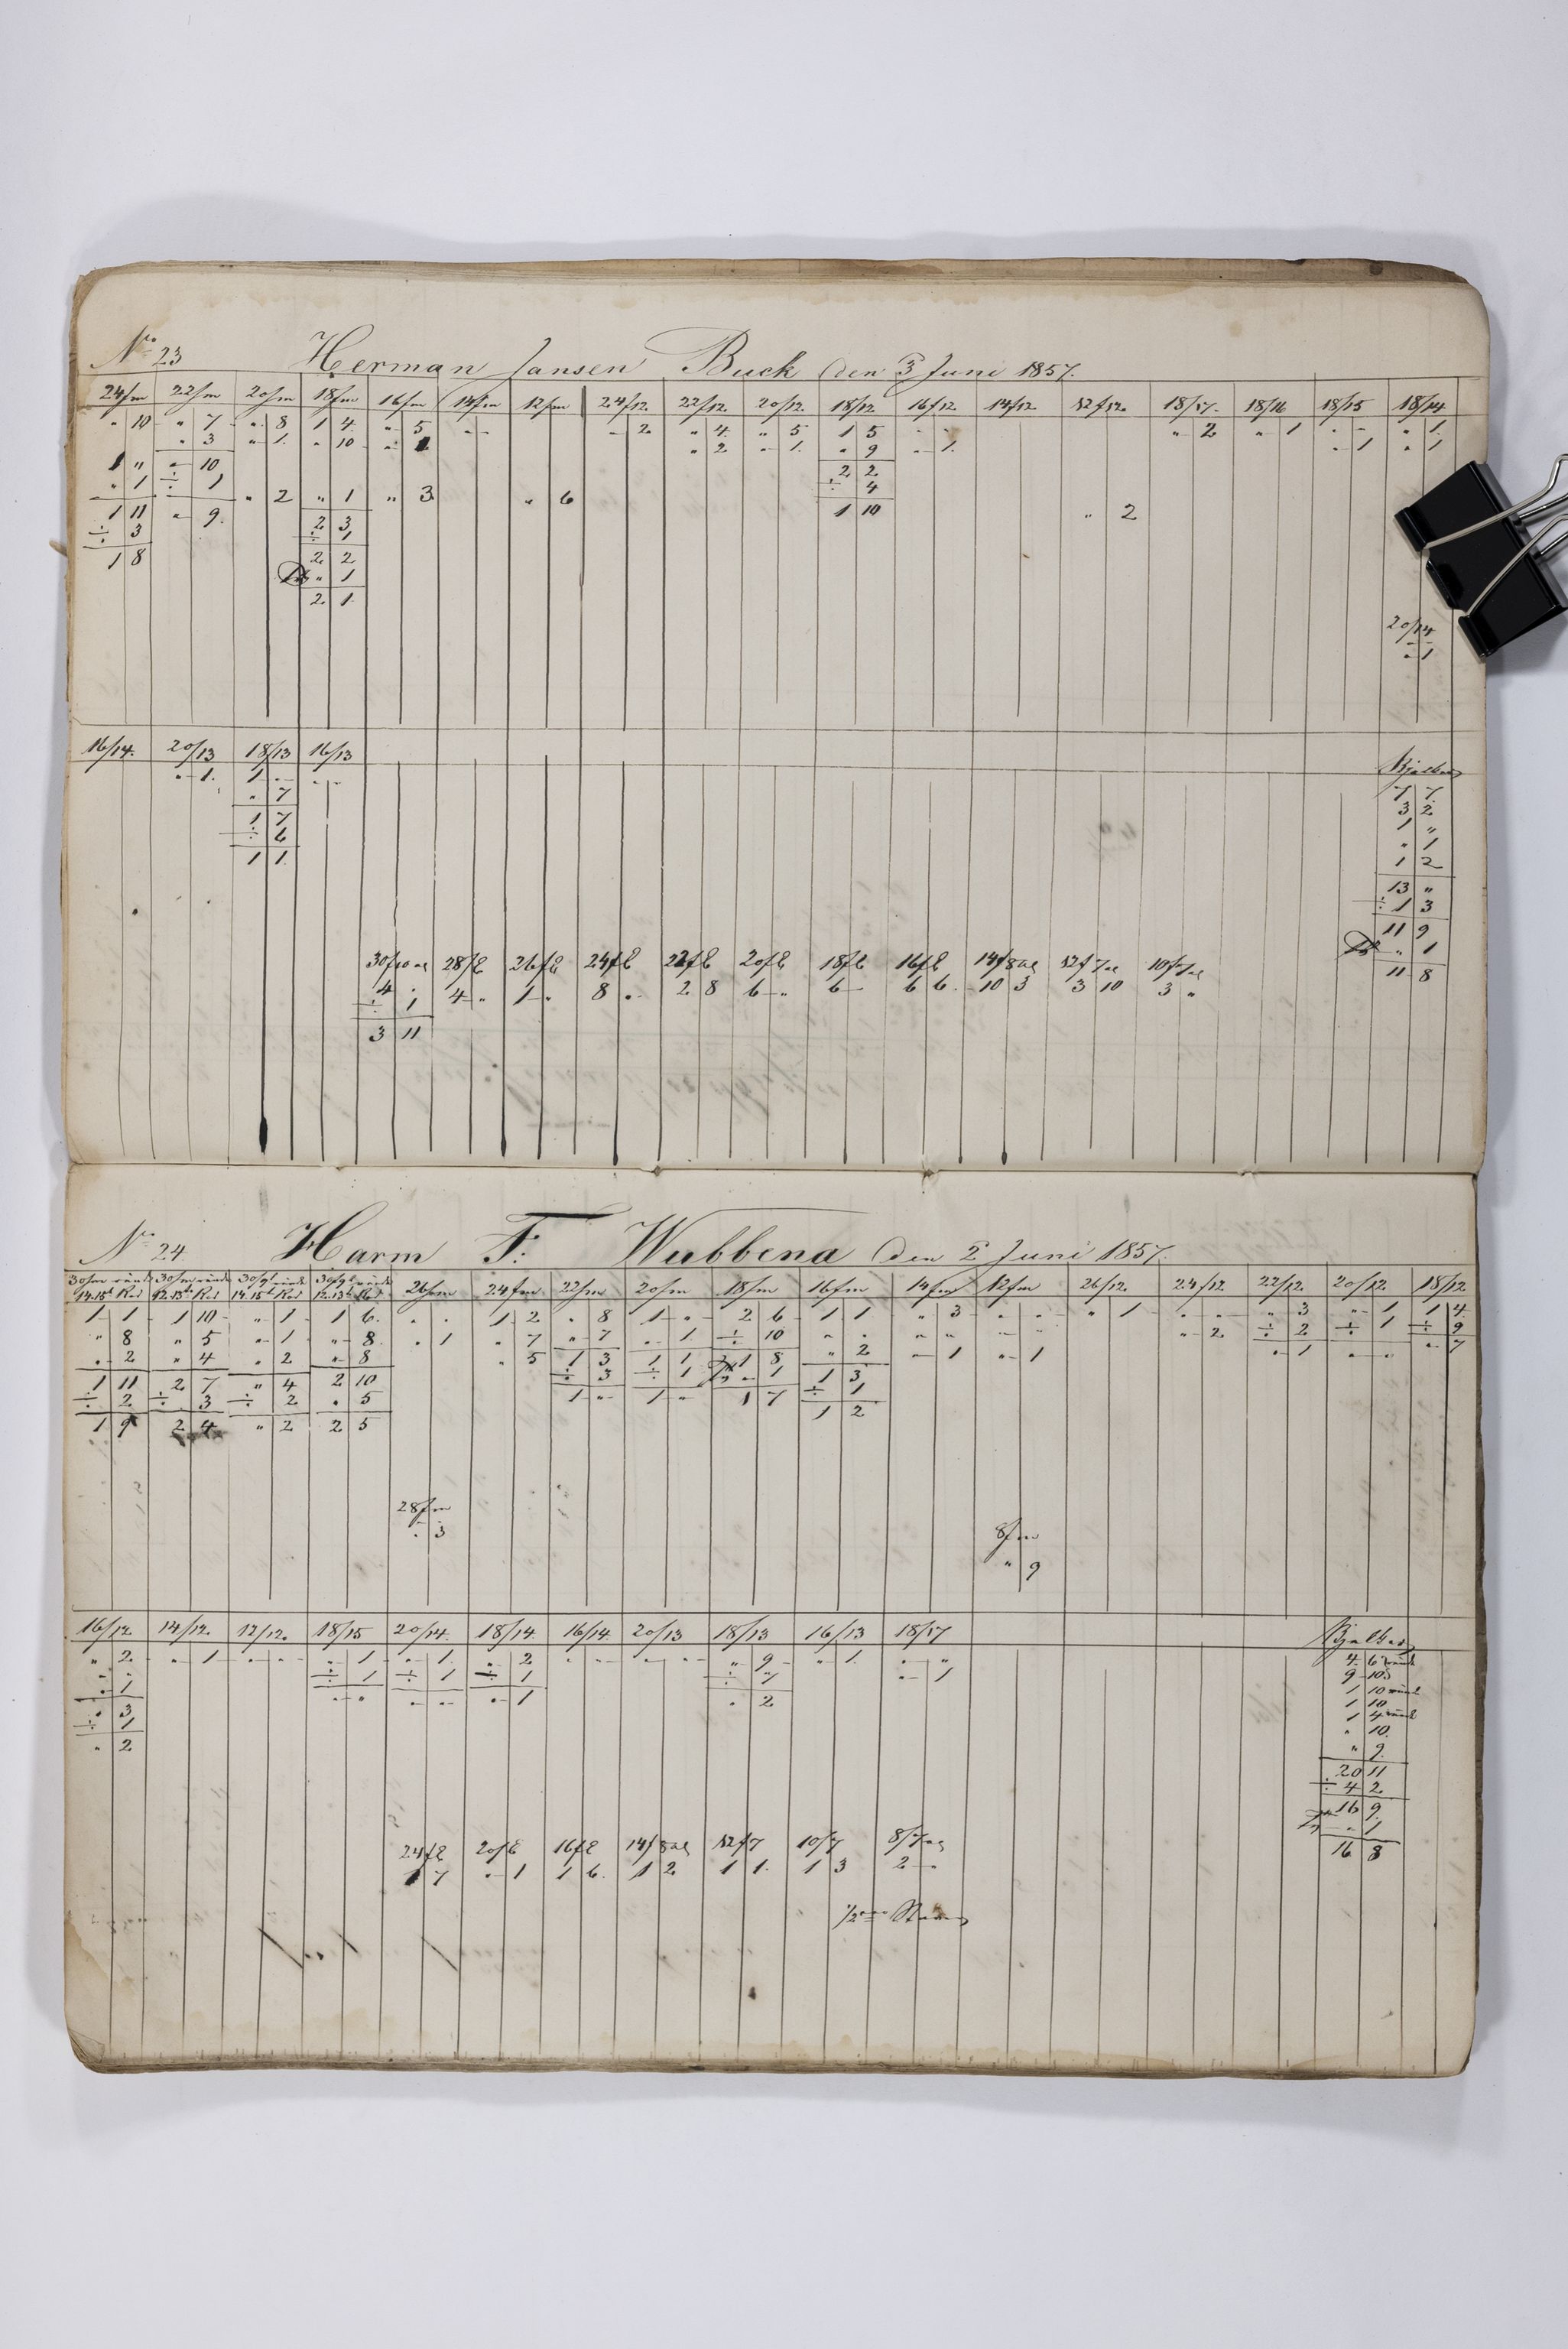 No 23 Herman Jansen Buck den 3 Juni 1857.
24fm 22fm 20fm 18fm 16fm 14fm 12fm 24/12. 22/12. 20/12 18/12 16/12 14/12 12/12. 18/17. 18/16 18/15 18/14
" 10 " 7 " 8 1 4 " 5 " - " 2 " 4 " 5 1 5 " - " 2 " 1 " - " 1
" 3 " 1 " 10 " 1 " 2 " 1 " 9 " 1 " 1 " 1
1 " " 10 2 2
" 1 ÷ 1 " 2 " 1 " 3 " 6 ÷ 4
1 11 " 9. 2 3 1 10 " 2
÷ 3 ÷ 1
1 8 2 2
" 1
2 1
20/14
" 1
16/14. 20/13 18/13 16/13 Bjelker
" 1. 1 " " -
" 7 7 7
1 7 3 2
÷ 6 1 "
1 1 " 1
1 2
13 "
÷ 1 3
11 9
" 1
11 8
30f10al 28f8 26f8 24f8 22f8 20f8 18f8 16f8 14f8al 12f7al 10f7al
4 " 4 " 1 " 8 " 2 8 6 " 6 - 6 6 10 3 3 10 3 "
÷ 1
3 11
No 24 Harm F. Wubbena den 2 Juni 1857.
26fm 24fm 22fm 20fm 18fm 16fm 14fm 12fm 26/12. 24/12 22/12 20/12 18/12
1 1 1 10 " 1 1 6 " " 1 2 " 8 1 " 2 6 1 1 " 3 " " " 1 " " " 3 " 1 1 4
" 8 " 5 " 1 " 8 " 1 " 7 " 7 " 1 ÷ 10 " " " " " " " 2 ÷ 2 ÷ 1 ÷ 9
" 2 " 4 " 2 " 8 " 5 1 3 1 1 1 8 " 2 " 1 " 1 " 1 " " " 7
1 11 2 7 " 4 2 10 ÷ 3 ÷ 1 " 1 1 3
÷ 2 ÷ 3 ÷ 2 " 5 1 " 1 " 1 7 ÷ 1
1 9 2 4 " 2 2 5 1 2
28fm
" 3
8fm
" 9
16/12 14/12. 12/12. 18/15 20/14. 18/14 16/14. 20/13 18/13 16/13 18/17 Bjelker
" 2 " 1 " - " 1 " 1 " 2 " - " - " 9 " 1 " "
" 1 ÷ 1 ÷ 1 ÷ 1 " 1
" 3 " " " - " 1 " 2
÷ 1
" 2
4 6
9 10
1 10
1 10
1 4
" 10
" 9
20 11
÷ 4 2
16 9
" 1
16 8
24f8 20f8 16f8 14f8al 12f7 10f7 8/7al
1 7 " 1 1 6 1 2 1 1 1 3 2 "